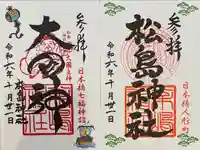 奉拝
大国神
日本橋七福神詣
令和六年十月廿一日
奉拝
松島神社
日本橋人形町
令和六年十月廿一日